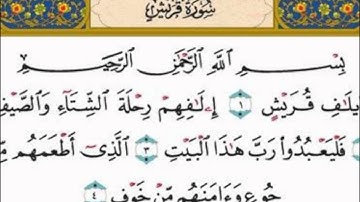 سُورَةُ قُرَيْشٍ
بِسْمِ اللَّهِ الرَّحْمَٰنِ الرَّحِيمِ
يلَٰفِ قُرَيْشٍ ١ إِۦلَٰفِهِمْ رِحْلَةَ الشِّتَاءِ وَالصَّيْفِ
فَلْيَعْبُدُوا۟ رَبَّ هَٰذَا الْبَيْتِ ٣ الَّذِىٓ أَطْعَمَهُم مِّ
جُوعٍ وَءَامَنَهُم مِّنْ خَوْفٍ ٤